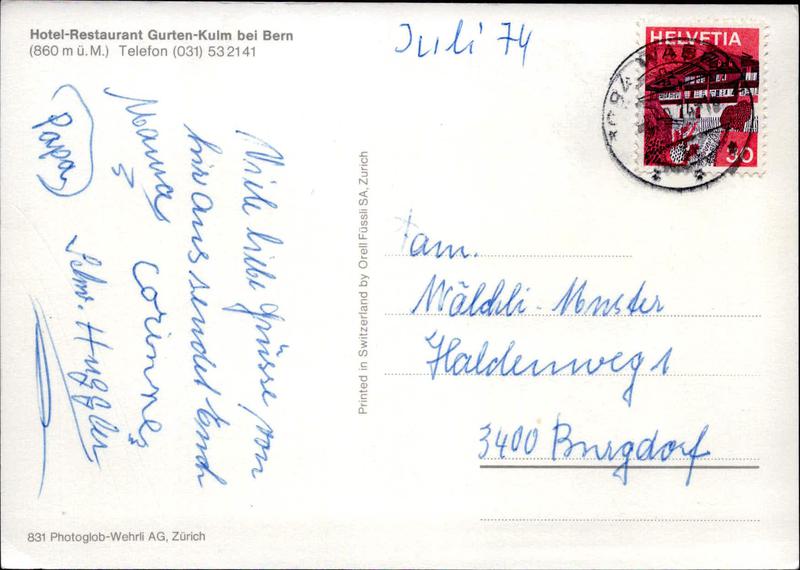 Hotel-Restaurant Gurten-Kulm bei Bern
(860 m ü.M.) Telefon (031) 53 21 41
Juli 74
HELVETIA
30
Viele liebe Grüsse von
hir aus sendet Euch
Mama &
Corinne &
(Papa)
Schw. Huggler
Printed in Switzerland by Orell Füssli SA, Zürich
Fam.
Wälchli-Muster
Haldenweg 1
3400 Burgdorf
831 Photoglob-Wehrli AG, Zürich